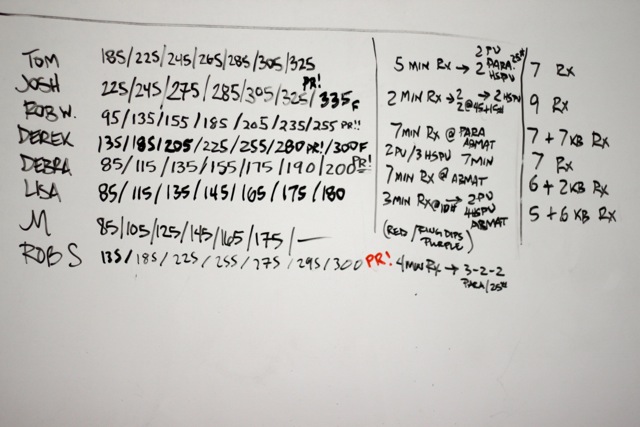 TOM 185/225/245/265/285/305/325
JOSH 225/245/275/285/305/325 PR!/335F
ROB W. 95/135/155/185/205/235/255 PR!!
DEREK 135/185/205/225/255/280 PR!/300F
DEBRA 85/115/135/155/175/190/200 PR!
LISA 85/115/135/145/165/175/180
M 85/105/125/145/165/175/—
ROB S 135/185/225/255/275/295/300 PR!
5 MIN Rx → 2 PU
2 PARA: 25#
HSPU
2 MIN Rx → 2 → 2 HSPU
7 MIN Rx @ PARA
ABMAT
2 PU/3 HSPU 7 MIN
7 MIN Rx @ ABMAT
3 MIN Rx @ 10# → 2 PU
4 HSPU
ABMAT
(RED / RING DIPS
PURPLE)
4 MIN Rx → 3-2-2
PARA/25#
7 Rx
9 Rx
7 + 7 KB Rx
7 Rx
6 + 2 KB Rx
5 + 6 KB Rx